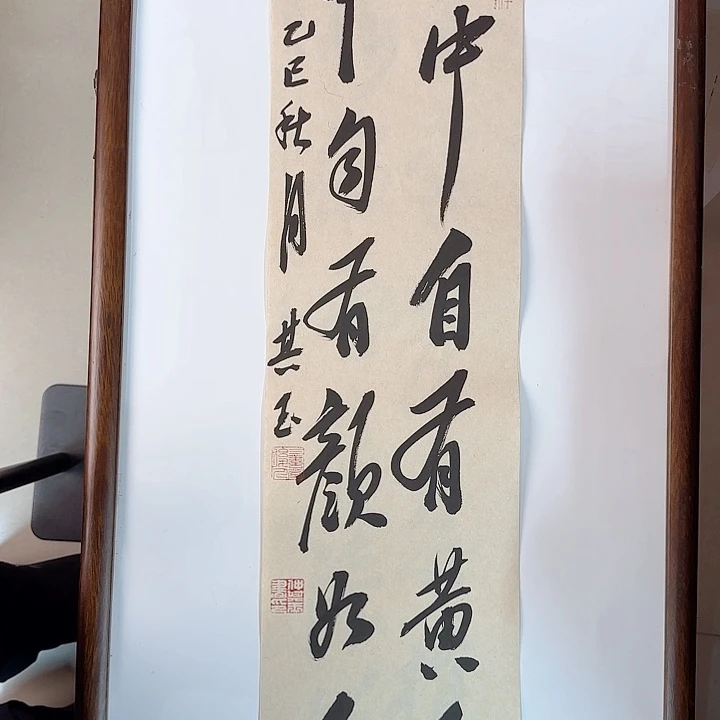 中自有黄
自有颜如
乙巳秋月 其玉